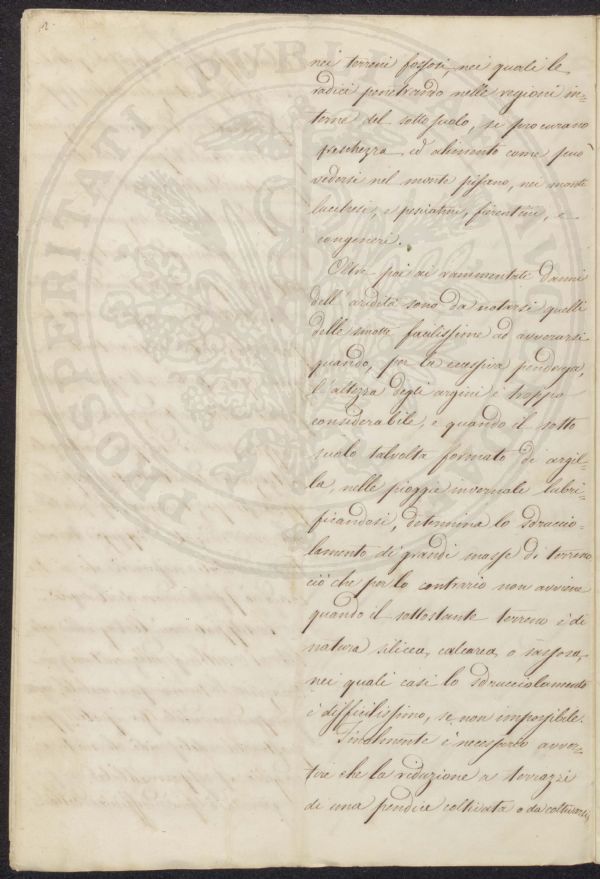 2.
nei terreni fossosi, nei quali le
radici penetrando nelle regioni in=
terne del sotto suolo, si procurano
freschezza ed alimento come può
vedersi nel monte pissano, nei monti
lucchesi, e pesciatini, fiorentini, e
congeneri.
Oltre poi ai rammentati danni
dell'aridità sono da notarsi quelli
delle smotte facilissime ad avverarsi
quando, per la eccessiva pendenza,
l'altezza degli argini è troppo
considerabile, e quando il sotto
suolo talvolta formato di argil=
la, nelle pioggie invernali lubri=
ficandosi, determina lo sdruccio=
lamento di grandi masse di terreno
ciò che per lo contrario non avviene
quando il sottostante terreno è di
natura silicea, calcarea, o sassosa,
nei quali casi lo sdrucciolamento
è difficilissimo, se non impossibile.
Finalmente è necessario avver=
tire che la riduzione a terrazzi
di una pendice coltivata o da coltivarsi
PROSPERITATI PVBLICAE